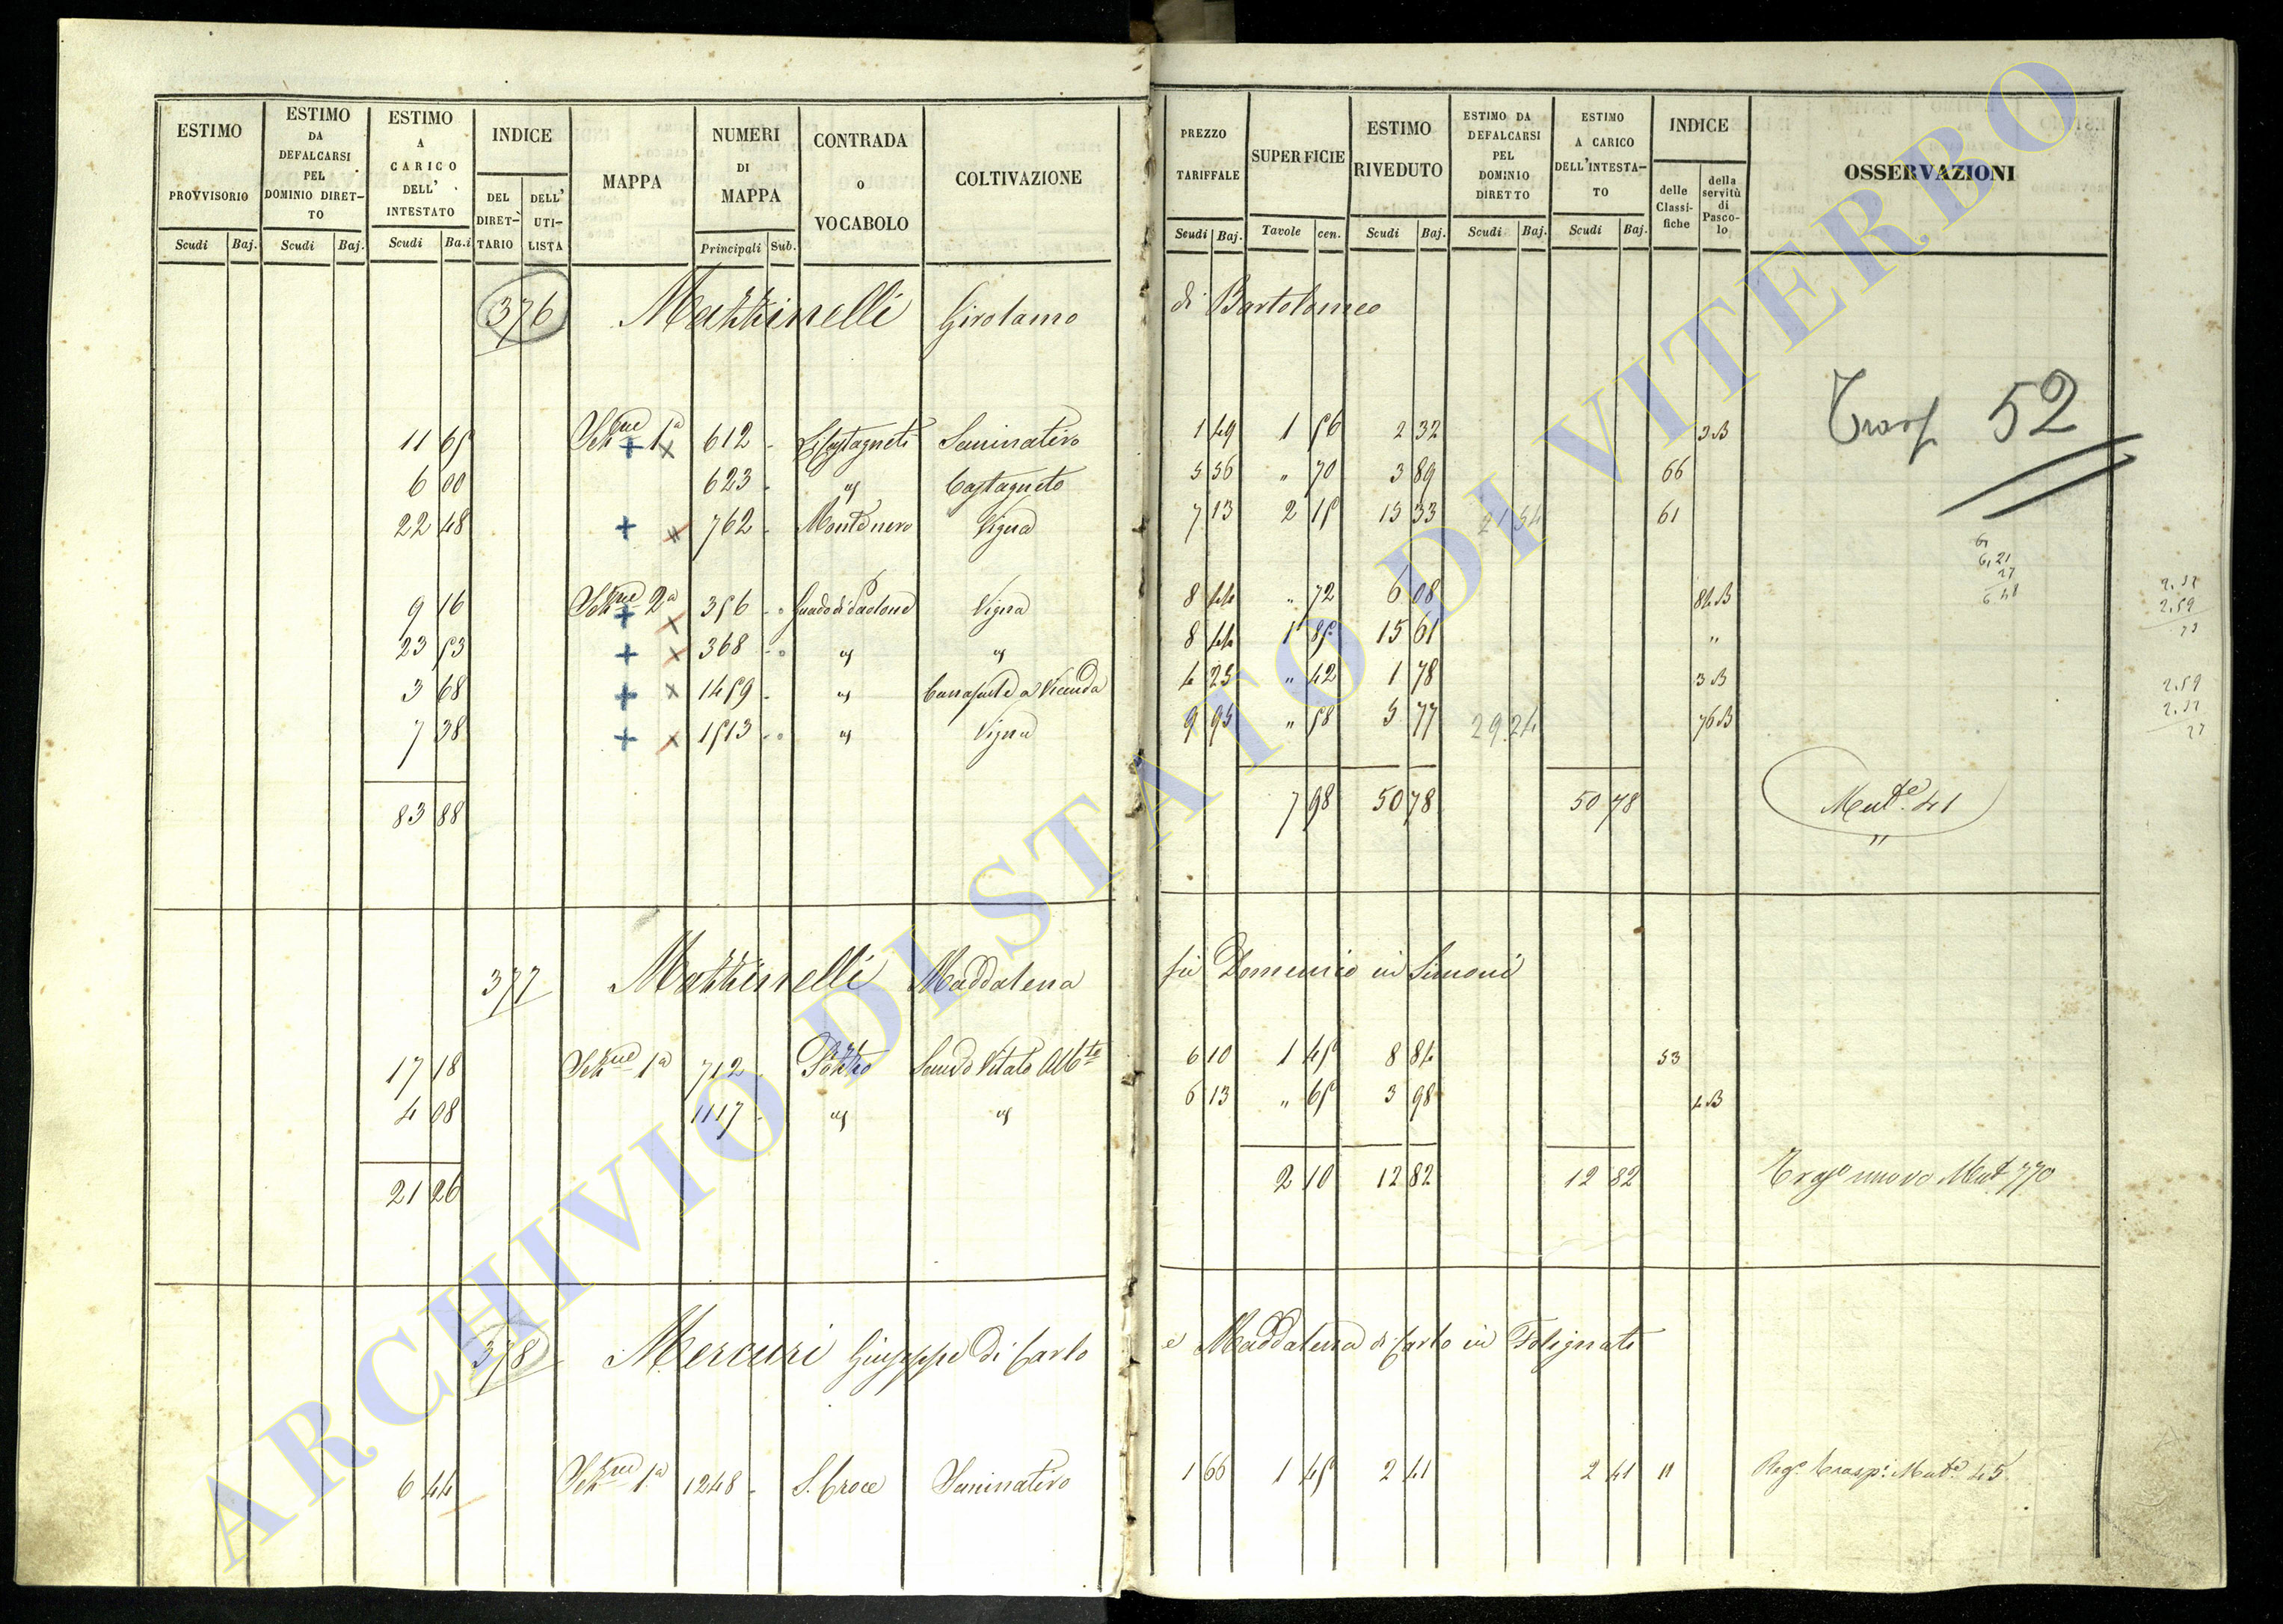 ESTIMO PROVVISORIO Scudi Baj. ESTIMO DA DEFALCARSI PEL DOMINIO DIRETTO Scudi Baj. ESTIMO A CARICO DELL' INTESTATO Scudi Ba.i INDICE DEL DIRET-TARIO DELL' UTI-LISTA MAPPA NUMERI DI MAPPA Principali Sub. CONTRADA O VOCABOLO COLTIVAZIONE PREZZO TARIFFALE Scudi Baj. SUPERFICIE Tavole cen. ESTIMO RIVEDUTO Scudi Baj. ESTIMO DA DEFALCARSI PEL DOMINIO DIRETTO Scudi Baj. ESTIMO A CARICO DELL'INTESTA-TO Scudi Baj. INDICE delle Classi-fiche della servitù di Pasco-lo OSSERVAZIONI
376 Mazzinelli Girolamo di Bartolomeo
Trasp 52
11 65 Sezne 1a 612 Li Castagneti Seminativo 1 49 1 56 2 32 3B
6 00 623 Castagneto 5 56 " 70 3 89 66
22 48 762 Montenero Vigna 7 13 2 15 15 33 21 54 61
9 16 Sezne 2a 356 Guado di Paolone Vigna 8 44 " 72 6 08 84B
23 53 368 8 44 1 85 15 61 "
3 68 1459 4 23 " 42 1 78 3B
7 38 1513 Vigna 9 95 " 58 5 77 29 24 76B
83 88 7 98 50 78 50 78 Mute 41
377 Mazzinelli Maddalena fù Domenico in Simoni
17 18 Sezne 1a 712 Pozzo Semvo Vitato Albto 6 10 1 45 8 84 53
4 08 1117 6 13 " 65 3 98 4B
21 26 2 10 12 82 12 82 nuovo Mut 770
378 Mercuri Giuseppe di Carlo e Maddalena di Carlo in Folignati
6 44 Sezne 1a 1248 S. Croce Seminativo 1 66 1 45 2 41 2 41 11 Rege traspi Mute 45
ARCHIVIO DI STATO DI VITERBO